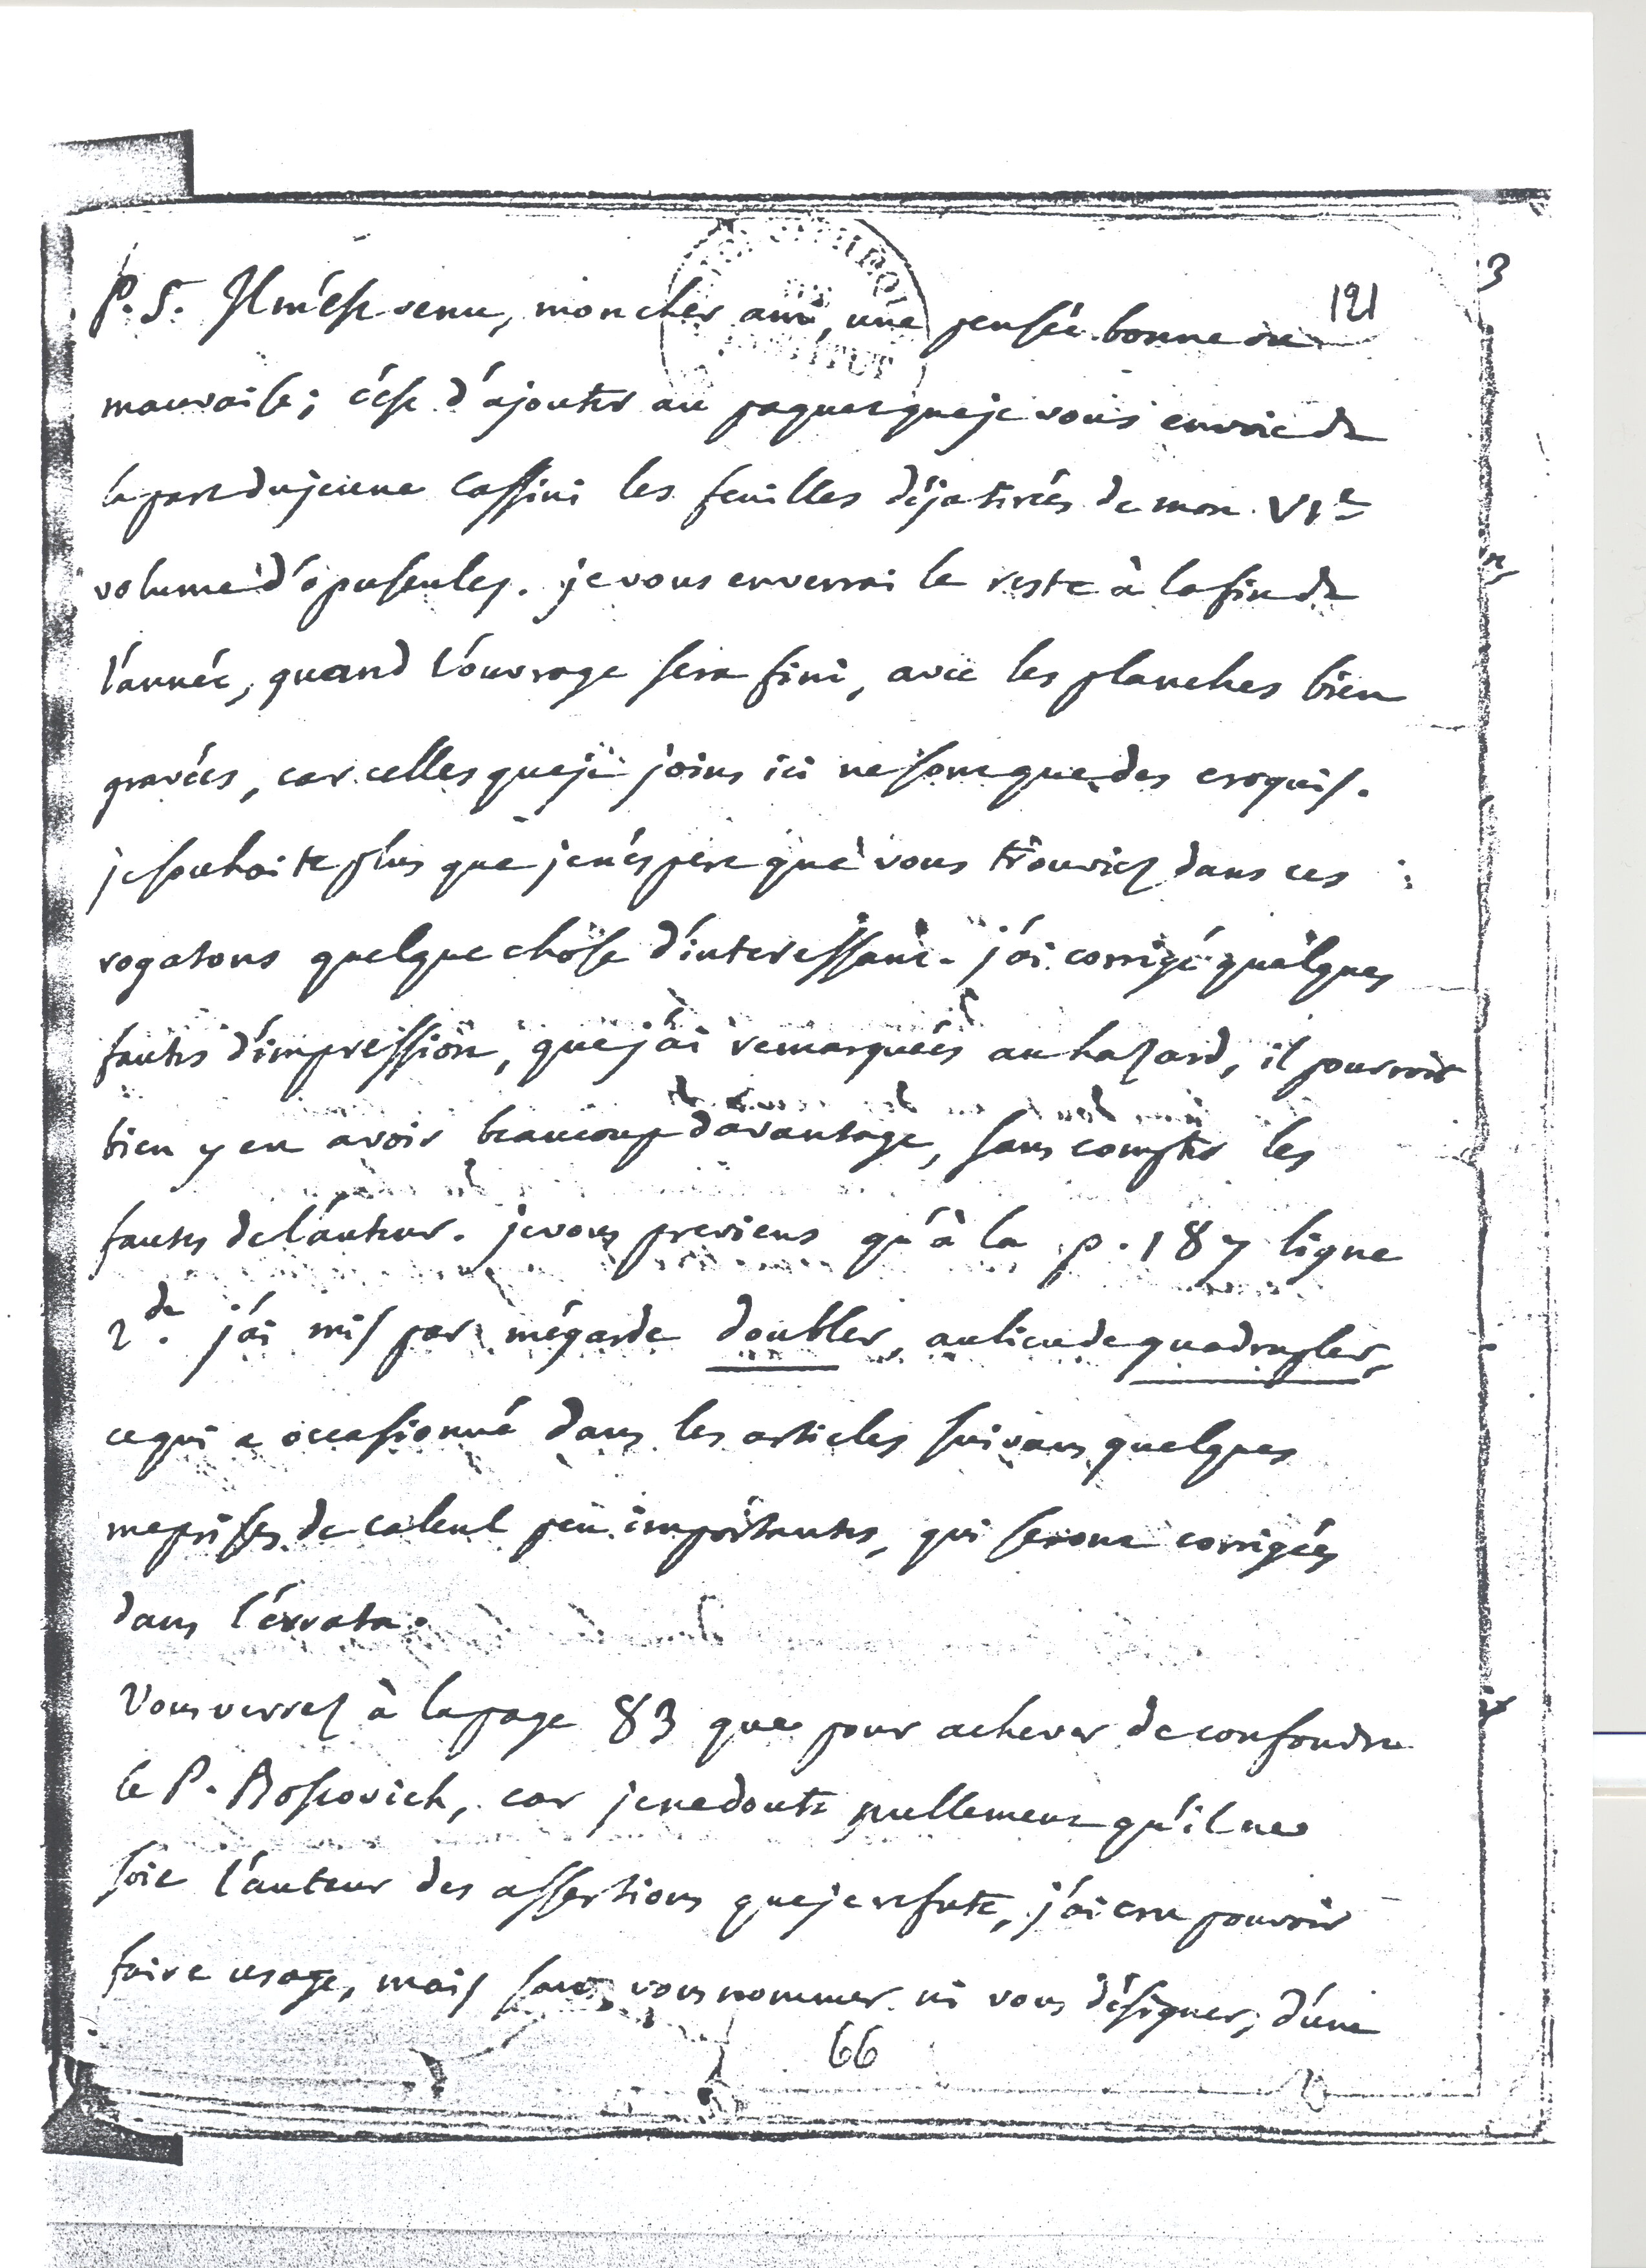 121
3
P.S. Il m'est venu, mon cher ami, une pensée bonne ou
mauvaise; c'est d'ajouter au paquet que je vous envoie de
la part du jeune Cassini les feuilles déja tirées de mon VIe
volume d'opuscules. je vous enverrai le reste à la fin de
l'année, quand l'ouvrage sera fini, avec les planches bien
gravées, car celles que je joins ici ne sont que des croquis.
je souhaite plus que je n'espere que vous trouviez dans ces
rogatons quelque chose d'interessant. j'ai corrigé quelques
fautes d'impression, que j'ai remarquées au hazard, il pourroit
bien y en avoir beaucoup davantage, sans compter les
fautes de l'auteur. je vous previens qu'à la p. 187 ligne
2de. j'ai mis par mégarde doubler, au lieu de quadrupler,
ce qui a occasionné dans les articles suivans quelques
meprises de calcul peu importantes, qui seront corrigées
dans l'errata.
Vous verrez à la page 83 que pour achever de confondre
le P. Boscovich, car je ne doute nullement qu'il ne
soit l'auteur des assertions que je refute, j'ai cru pouvoir
faire usage, mais sans vous nommer ni vous désigner, d'une
66